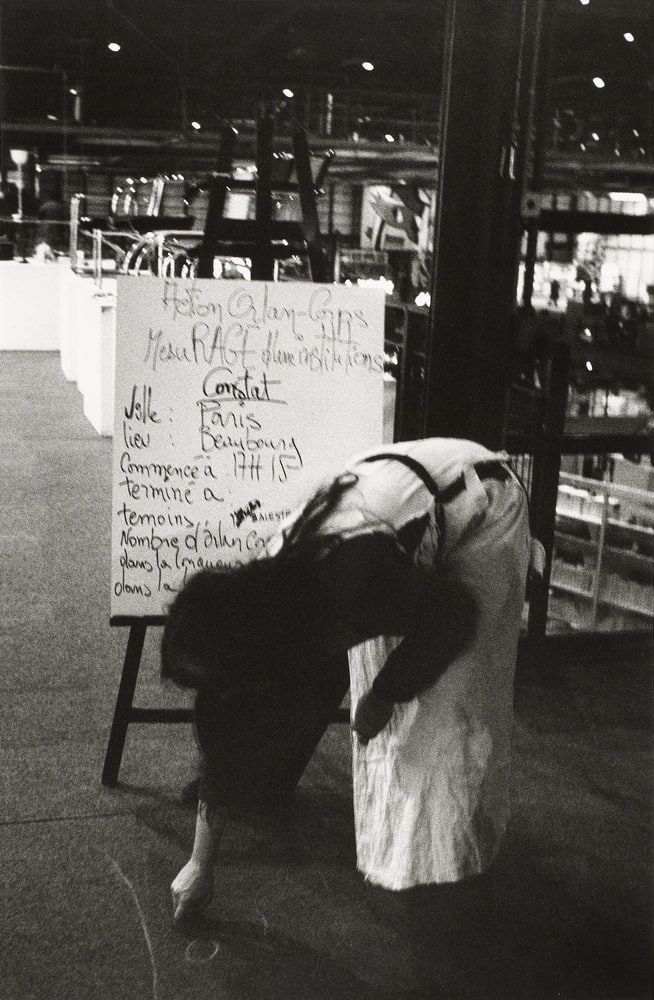 Action Orlan-Corps
MesuRAGE d'une institution
Constat
Ville : Paris
lieu : Beaubourg
Commencé à : 17H 15
terminé a
temoins
Nombre d'Orlan Co
dans la
dans